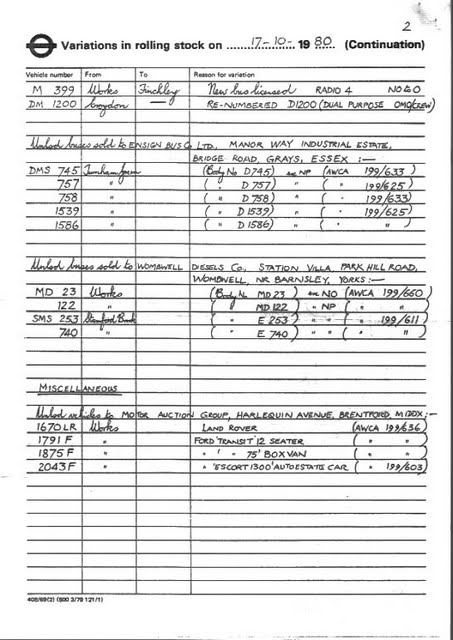 2
Variations in rolling stock on 17-10- 1980 (Continuation)
Vehicle number From To Reason for variation
M 399 Works Finchley New bus licensed RADIO 4 NO & O
DM 1200 Croydon — RE-NUMBERED D1200 (DUAL PURPOSE OMO/CREW)
Unlicd buses sold to ENSIGN BUS Co LTD., MANOR WAY INDUSTRIAL ESTATE,
BRIDGE ROAD, GRAYS, ESSEX :—
DMS 745 Turnham Green (Body No D745) ex NP (AWCA 199/633)
757 " ( " D757) " ( " 199/625)
758 " ( " D758) " ( " 199/633)
1539 " ( " D1539) " ( " 199/625)
1586 " ( " D1586) " ( " " )
Unlicd buses sold to WOMBWELL DIESELS Co., STATION VILLA, PARK HILL ROAD,
WOMBWELL, NR BARNSLEY, YORKS :—
MD 23 Works (Body No MD 23) ex NO (AWCA 199/650)
122 " ( " MD 122 " NP ( " " )
SMS 253 Stamford Brook ( " E 253) " " ( " 199/611)
740 " ( " E 740) " " ( " " )
MISCELLANEOUS
Unlicd vehicles to MOTOR AUCTION GROUP, HARLEQUIN AVENUE, BRENTFORD, MIDDX :—
1670 LR Works LAND ROVER (AWCA 199/636)
1791 F " FORD 'TRANSIT' 12 SEATER ( " " )
1875 F " " ' " 75' BOX VAN ( " " )
2043 F " " 'ESCORT 1300' AUTO ESTATE CAR ( " 199/603)
408/69(2) (600 3/78 121/1)